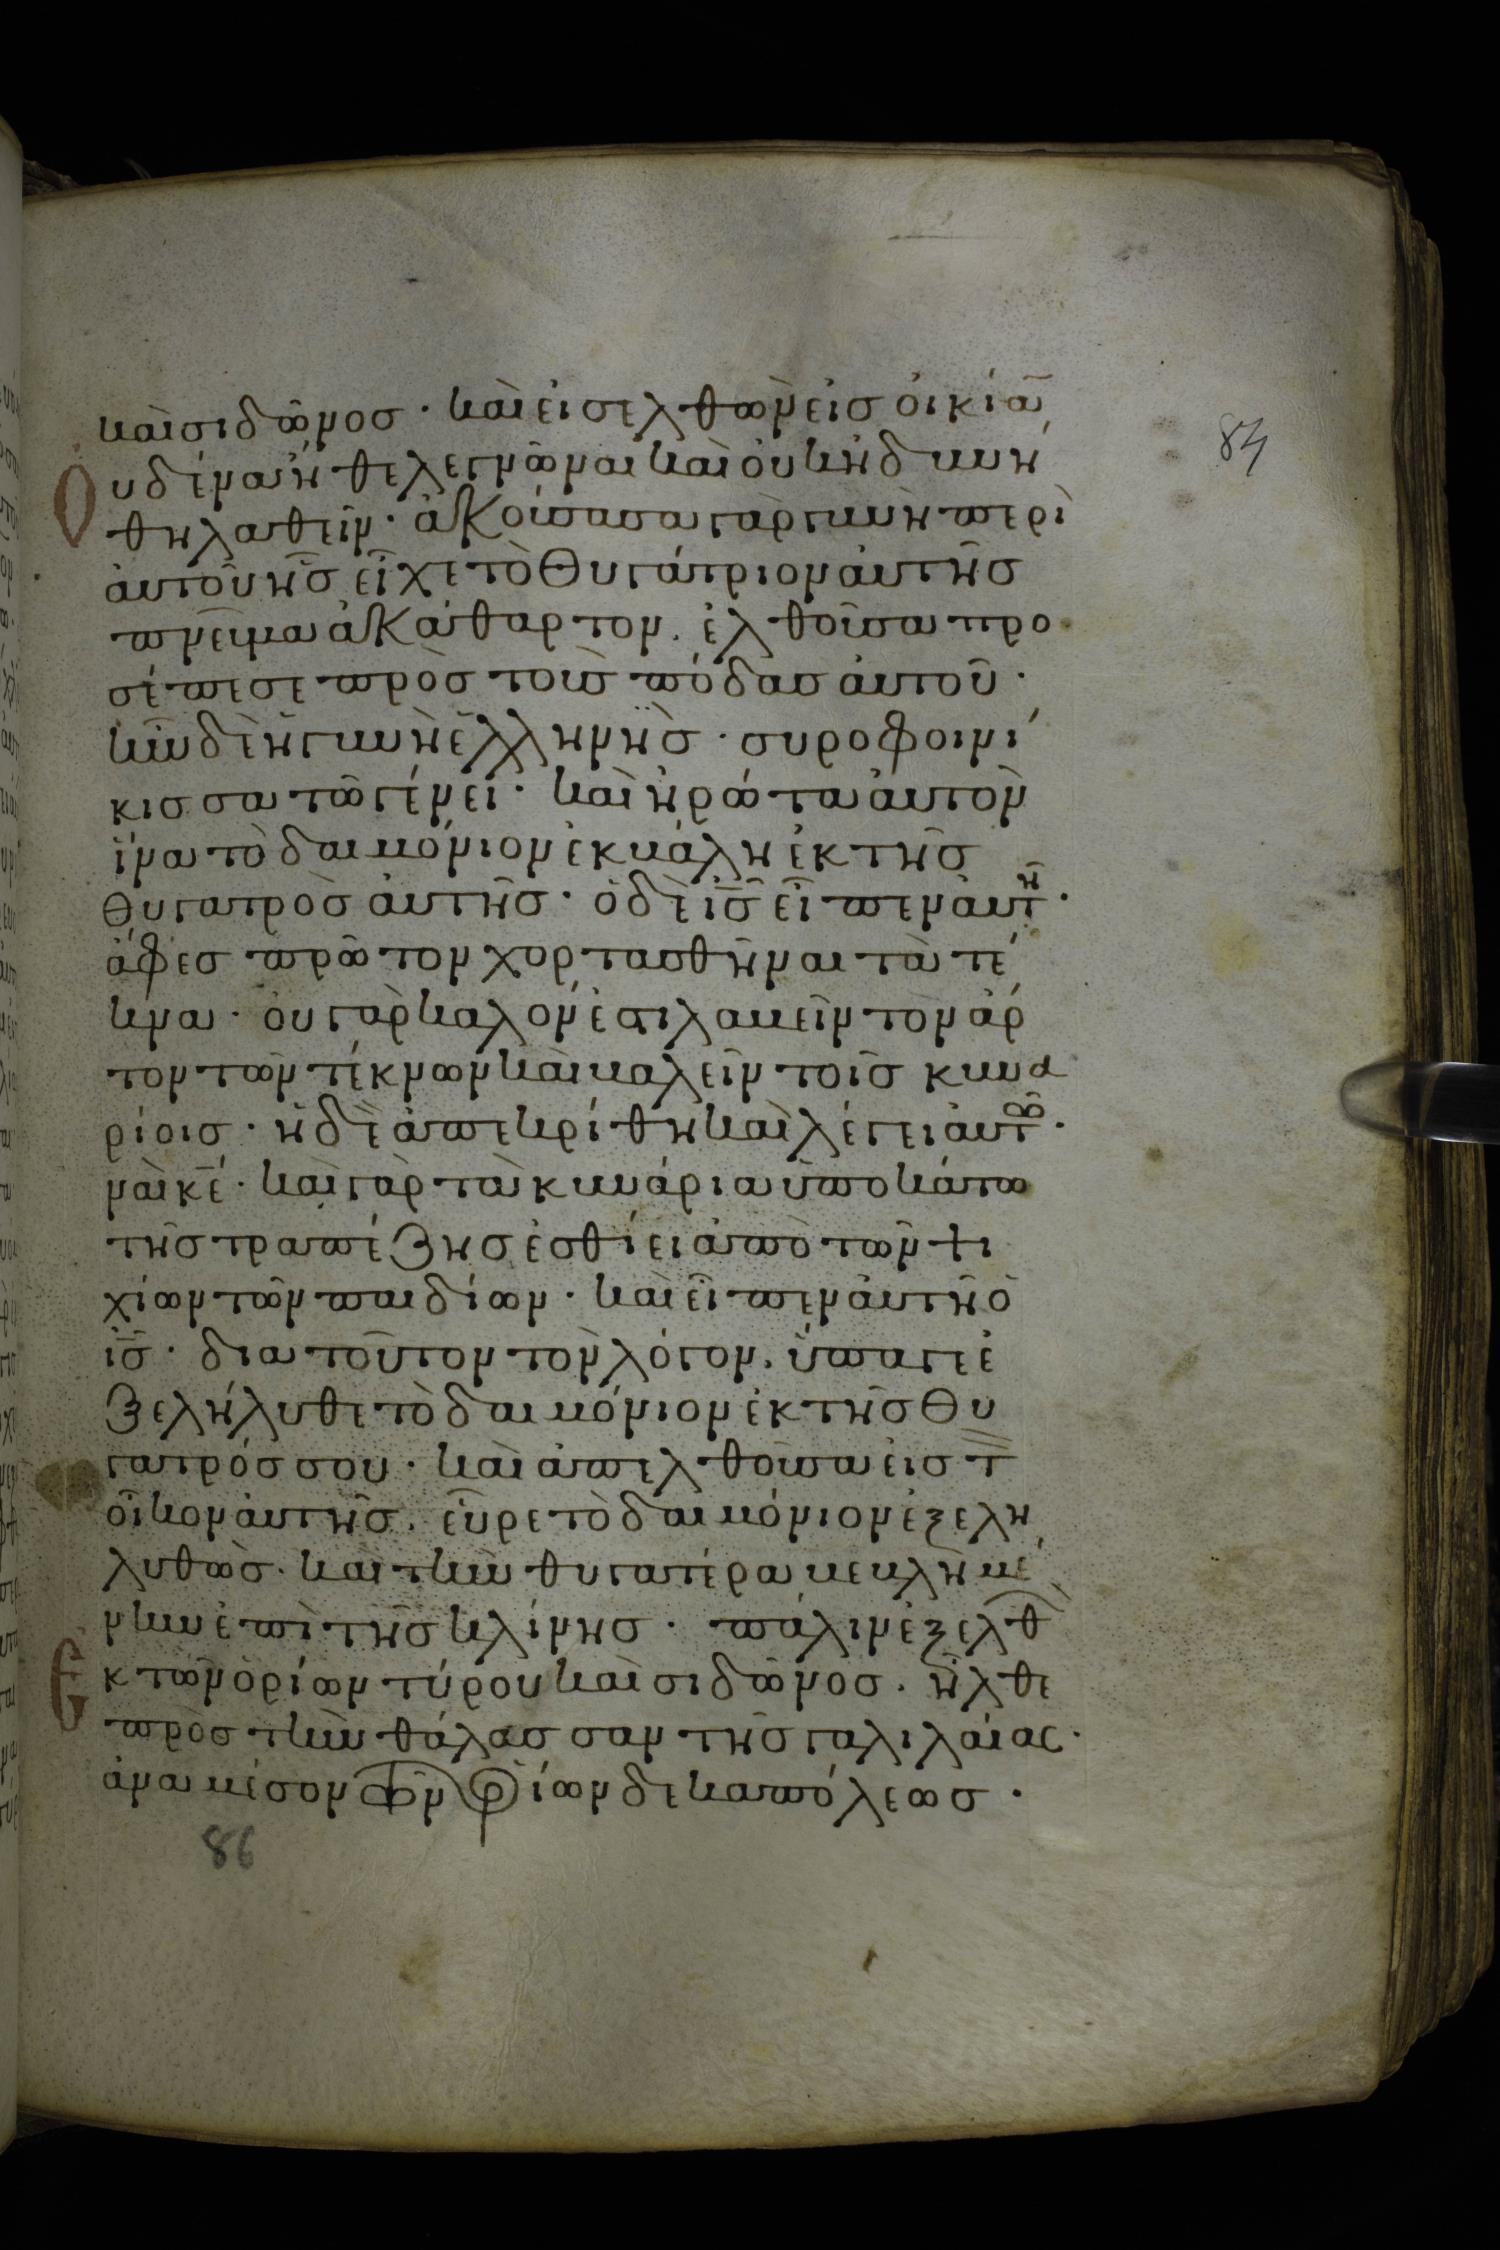 καὶ σιδῶνος · καὶ εἰσελθὼν εἰς οἰκίαν
Οὐδένα ἤθελε γνῶναι καὶ οὐκ ἠδυνή
84
θη λαθεῖν · ἀκούσασα γὰρ γυνὴ περὶ
αὐτοῦ ἧς εἶχε τὸ θυγάτριον αὐτῆς
πνεῦμα ἀκάθαρτον · ἐλθοῦσα προ
σέπεσε πρὸς τοὺς πόδας αὐτοῦ ·
ἦν δὲ ἡ γυνὴ ἑλληνὴς · συροφοινί
κισσα τῶ γένει · καὶ ἠρώτα αὐτὸν
ἵνα τὸ δαιμόνιον ἐκβάλη ἐκ τῆς
θυγατρὸς αὐτῆς · ὁ δὲ ις εἶπεν αὐτῆ ·
ἄφες πρῶτον χορτασθῆναι τὰ τέ
κνα · οὐ γὰρ καλόν ἐστι λαβεῖν τὸν ἄρ
τον τῶν τέκνων καὶ βαλεῖν τοῖς κυνα
ρίοις · ἡ δὲ ἀπεκρίθη καὶ λέγει αὐτῶ ·
ναὶ κε · καὶ γὰρ τὰ κυνάρια ὑποκάτω
τῆς τραπέζης ἐσθίει ἀπὸ τῶν ψι
χίων τῶν παιδίων · καὶ εἶπεν αὐτῆ ὁ
ις · δια τοῦτον τὸν λόγον · ὕπαγε ἐ
ξελήλυθε τὸ δαιμόνιον ἐκ τῆς θυ
γατρός σου · καὶ ἀπελθοῦσα εἰς τ
οἶκον αὐτῆς · εὗρε τὸ δαιμόνιον ἐξελη
λυθὼς · καὶ τὴν θυγατέρα βεβλημέ
νην ἐπὶ τῆς κλίνης · πάλιν ἐξελθ
Ἐκ τῶν ὁρίων τύρου καὶ σιδῶνος · ἦλθε
πρὸς τὴν θάλασσαν τῆς γαλιλαίας ·
ἀνα μέσον τῶν ὁρίων δεκαπόλεως ·
86